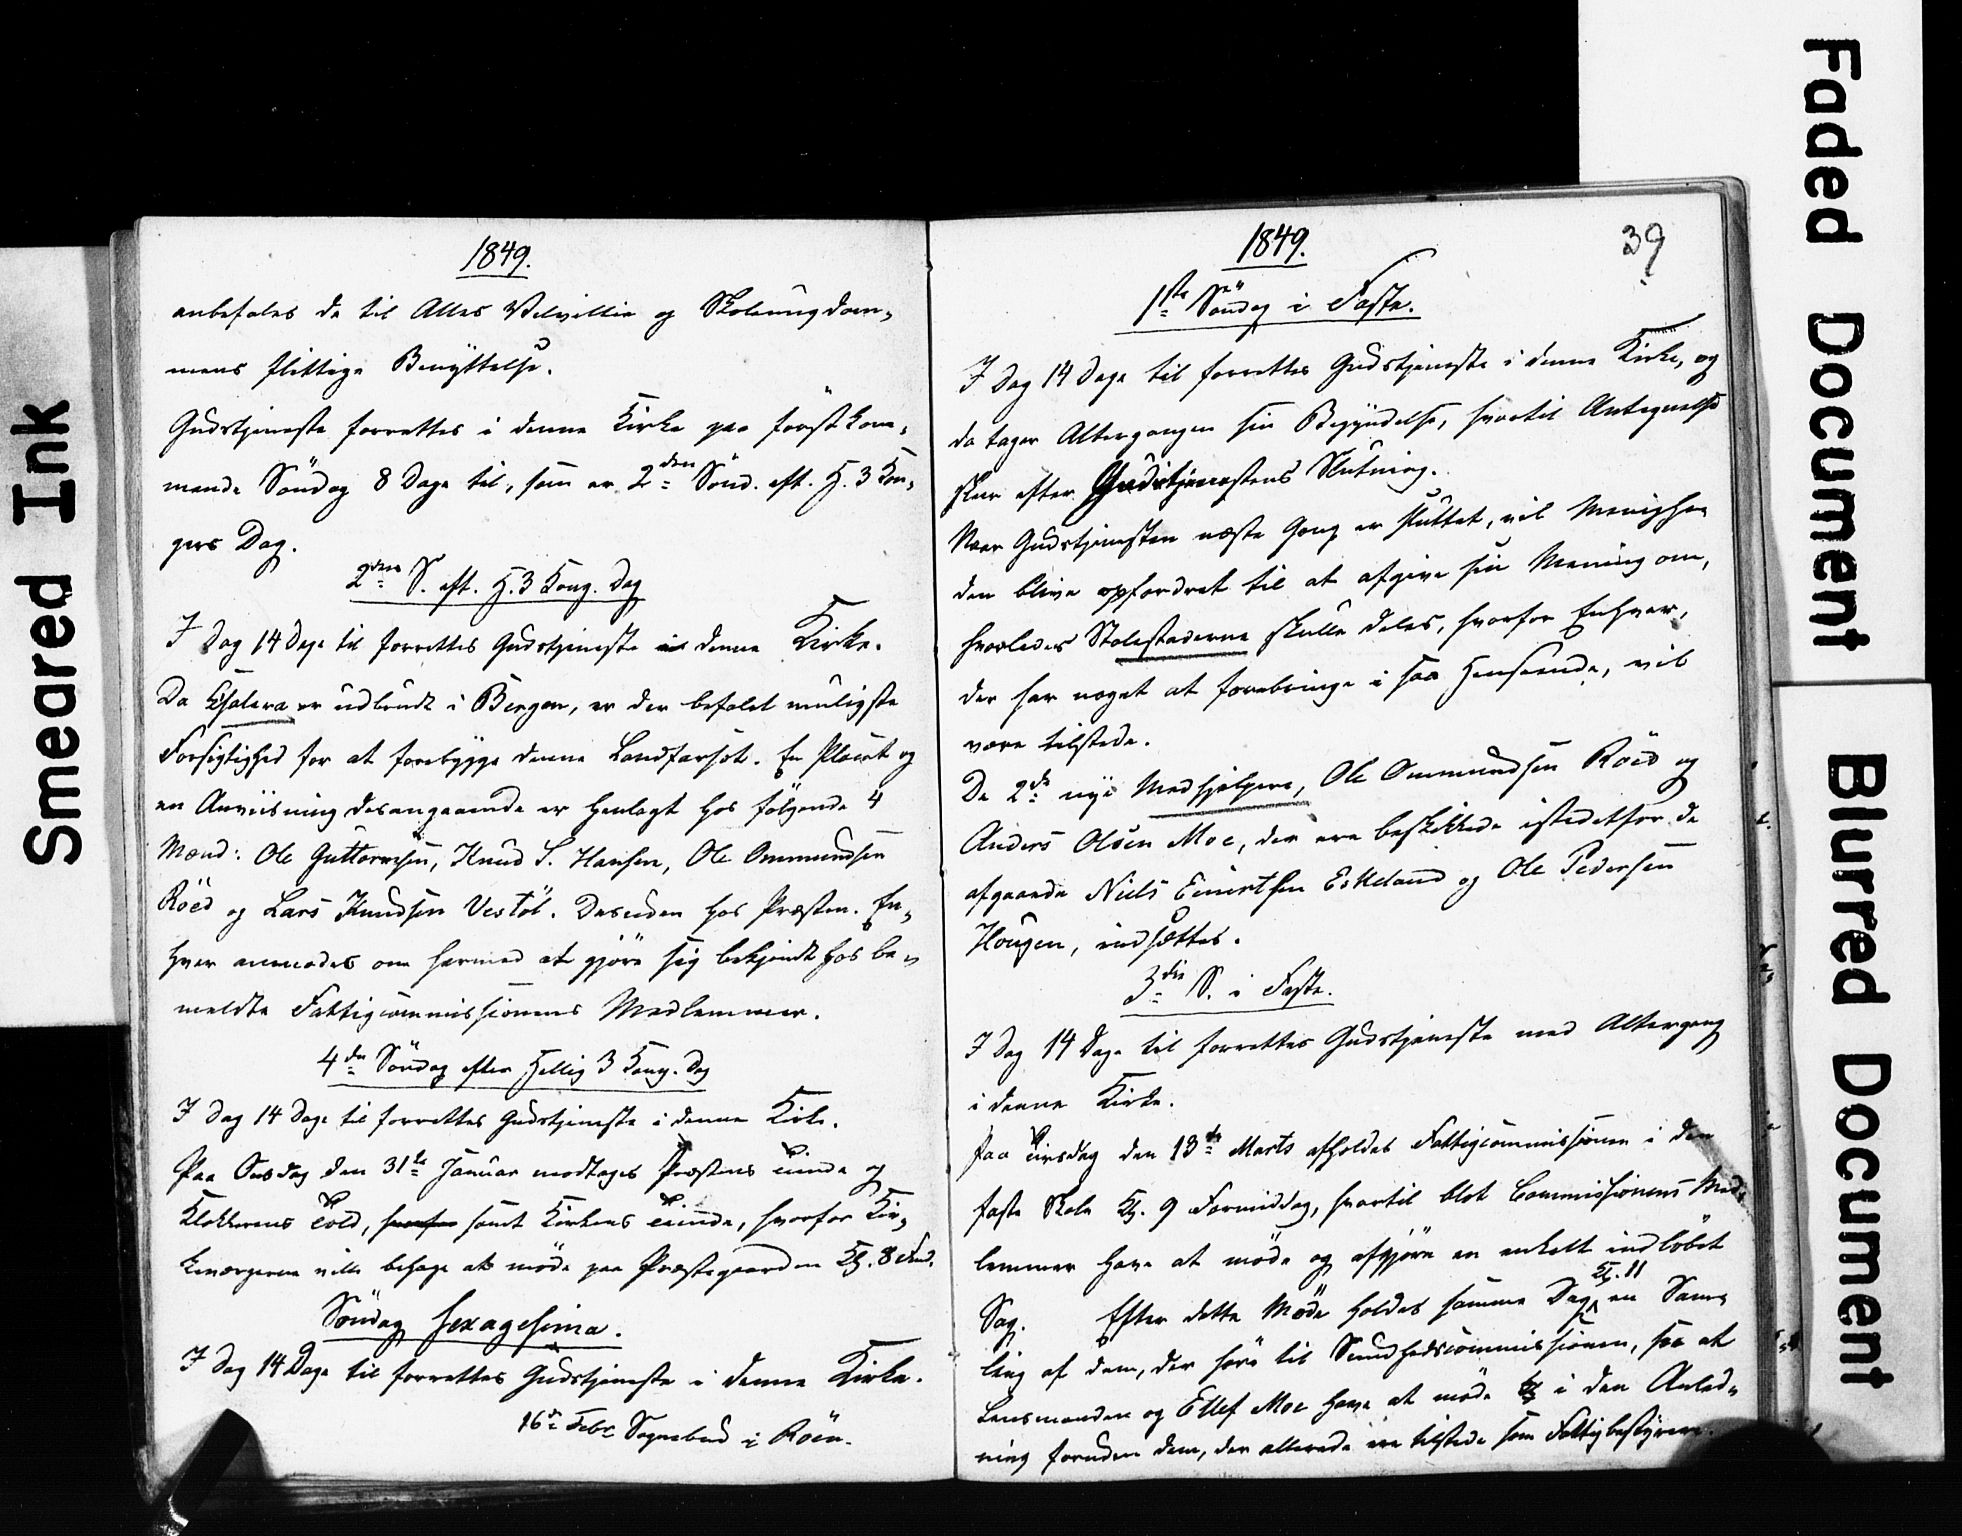 Smeared Ink
1849.
anbefales de til Alles Velvillie og Skoleungdom-
mens flittige Benyttelse.
Gudstjeneste forrettes i denne Kirke paa förstkom-
mende Söndag 8 Dage til, som er 2den Sönd. eft. H. 3 Kon-
gers Dag.
2den S. eft. H. 3 Kong. Dag
I Dag 14 Dage til forrettes Gudstjeneste i denne Kirke.
Da Cholera er udbrudt i Bergen, er der befalet muligste
Forsigtighed for at forebygge denne Landfarsot. En Placat og
en Anviisning desangaaende er henlagt hos fölgende 4
Mænd: Ole Guttormsen, Knud S. Hansen, Ole Ommundsen
Röed og Lars Knudsen Vestöl. Desuden hos Præsten. En-
hver anmodes om hermed at gjöre sig bekjendt hos be-
meldte Fattigcommissionens Medlemmer.
4de Söndag efter Hellig 3 Kong. Dag
I Dag 14 Dage til forrettes Gudstjeneste i denne Kirke.
Paa Onsdag den 31te Januar modtages Præstens Tiende og
Klokkerens Told, hvorfor samt Kirkens Tiende, hvorfor Kir-
keværgerne ville behage at möde paa Præstegaarden Kl. 8 Fmd.
Söndag Sexagesima.
I Dag 14 Dage til forrettes Gudstjeneste i denne Kirke.
16de Febr Sognebud i Röen.
1849.
39
1ste Söndag i Faste.
I Dag 14 Dage til forrettes Gudstjeneste i denne Kirke, og
da tager Altergangen sin Begyndelse, hvortil Antegnelse
skeer efter Gudstjenestens Slutning.
Naar Gudstjenesten næste Gang er sluttet, vil Menighe-
den blive opfordret til at afgive sin Mening om,
hvorledes Stolestaderne skulle deles, hvorfor Enhver,
der har noget at forebringe i saa Henseende, vil
være tilstede.
De 2de nye Medhjelpere, Ole Ommundsen Röed og
Anders Olsen Moe, der ere beskikkede istedetfor de
afgaaede Niels Einertsen Eskeland og Ole Pedersen
Hougen, indsættes.
3die S. i Faste.
I Dag 14 Dage til forrettes Gudstjeneste med Altergang
i denne Kirke.
Paa Tirsdag den 13de Marts afholdes Fattigcommissionen i den
faste Skole Kl. 9 Formiddag, hvortil blot Commissionens Med-
lemmer have at möde og afgjöre en enkelt indlöbet
Sag. Efter dette Möde holdes samme Dag Kl. 11 en Sam-
ling af dem, der höre til Sundhedscommissionen, saa at
Lensmanden og Ellef Moe have at möde i den Anled-
ning foruden dem, der allerede ere tilstede som Fattigbestyrere.
Faded Document
Blurred Document